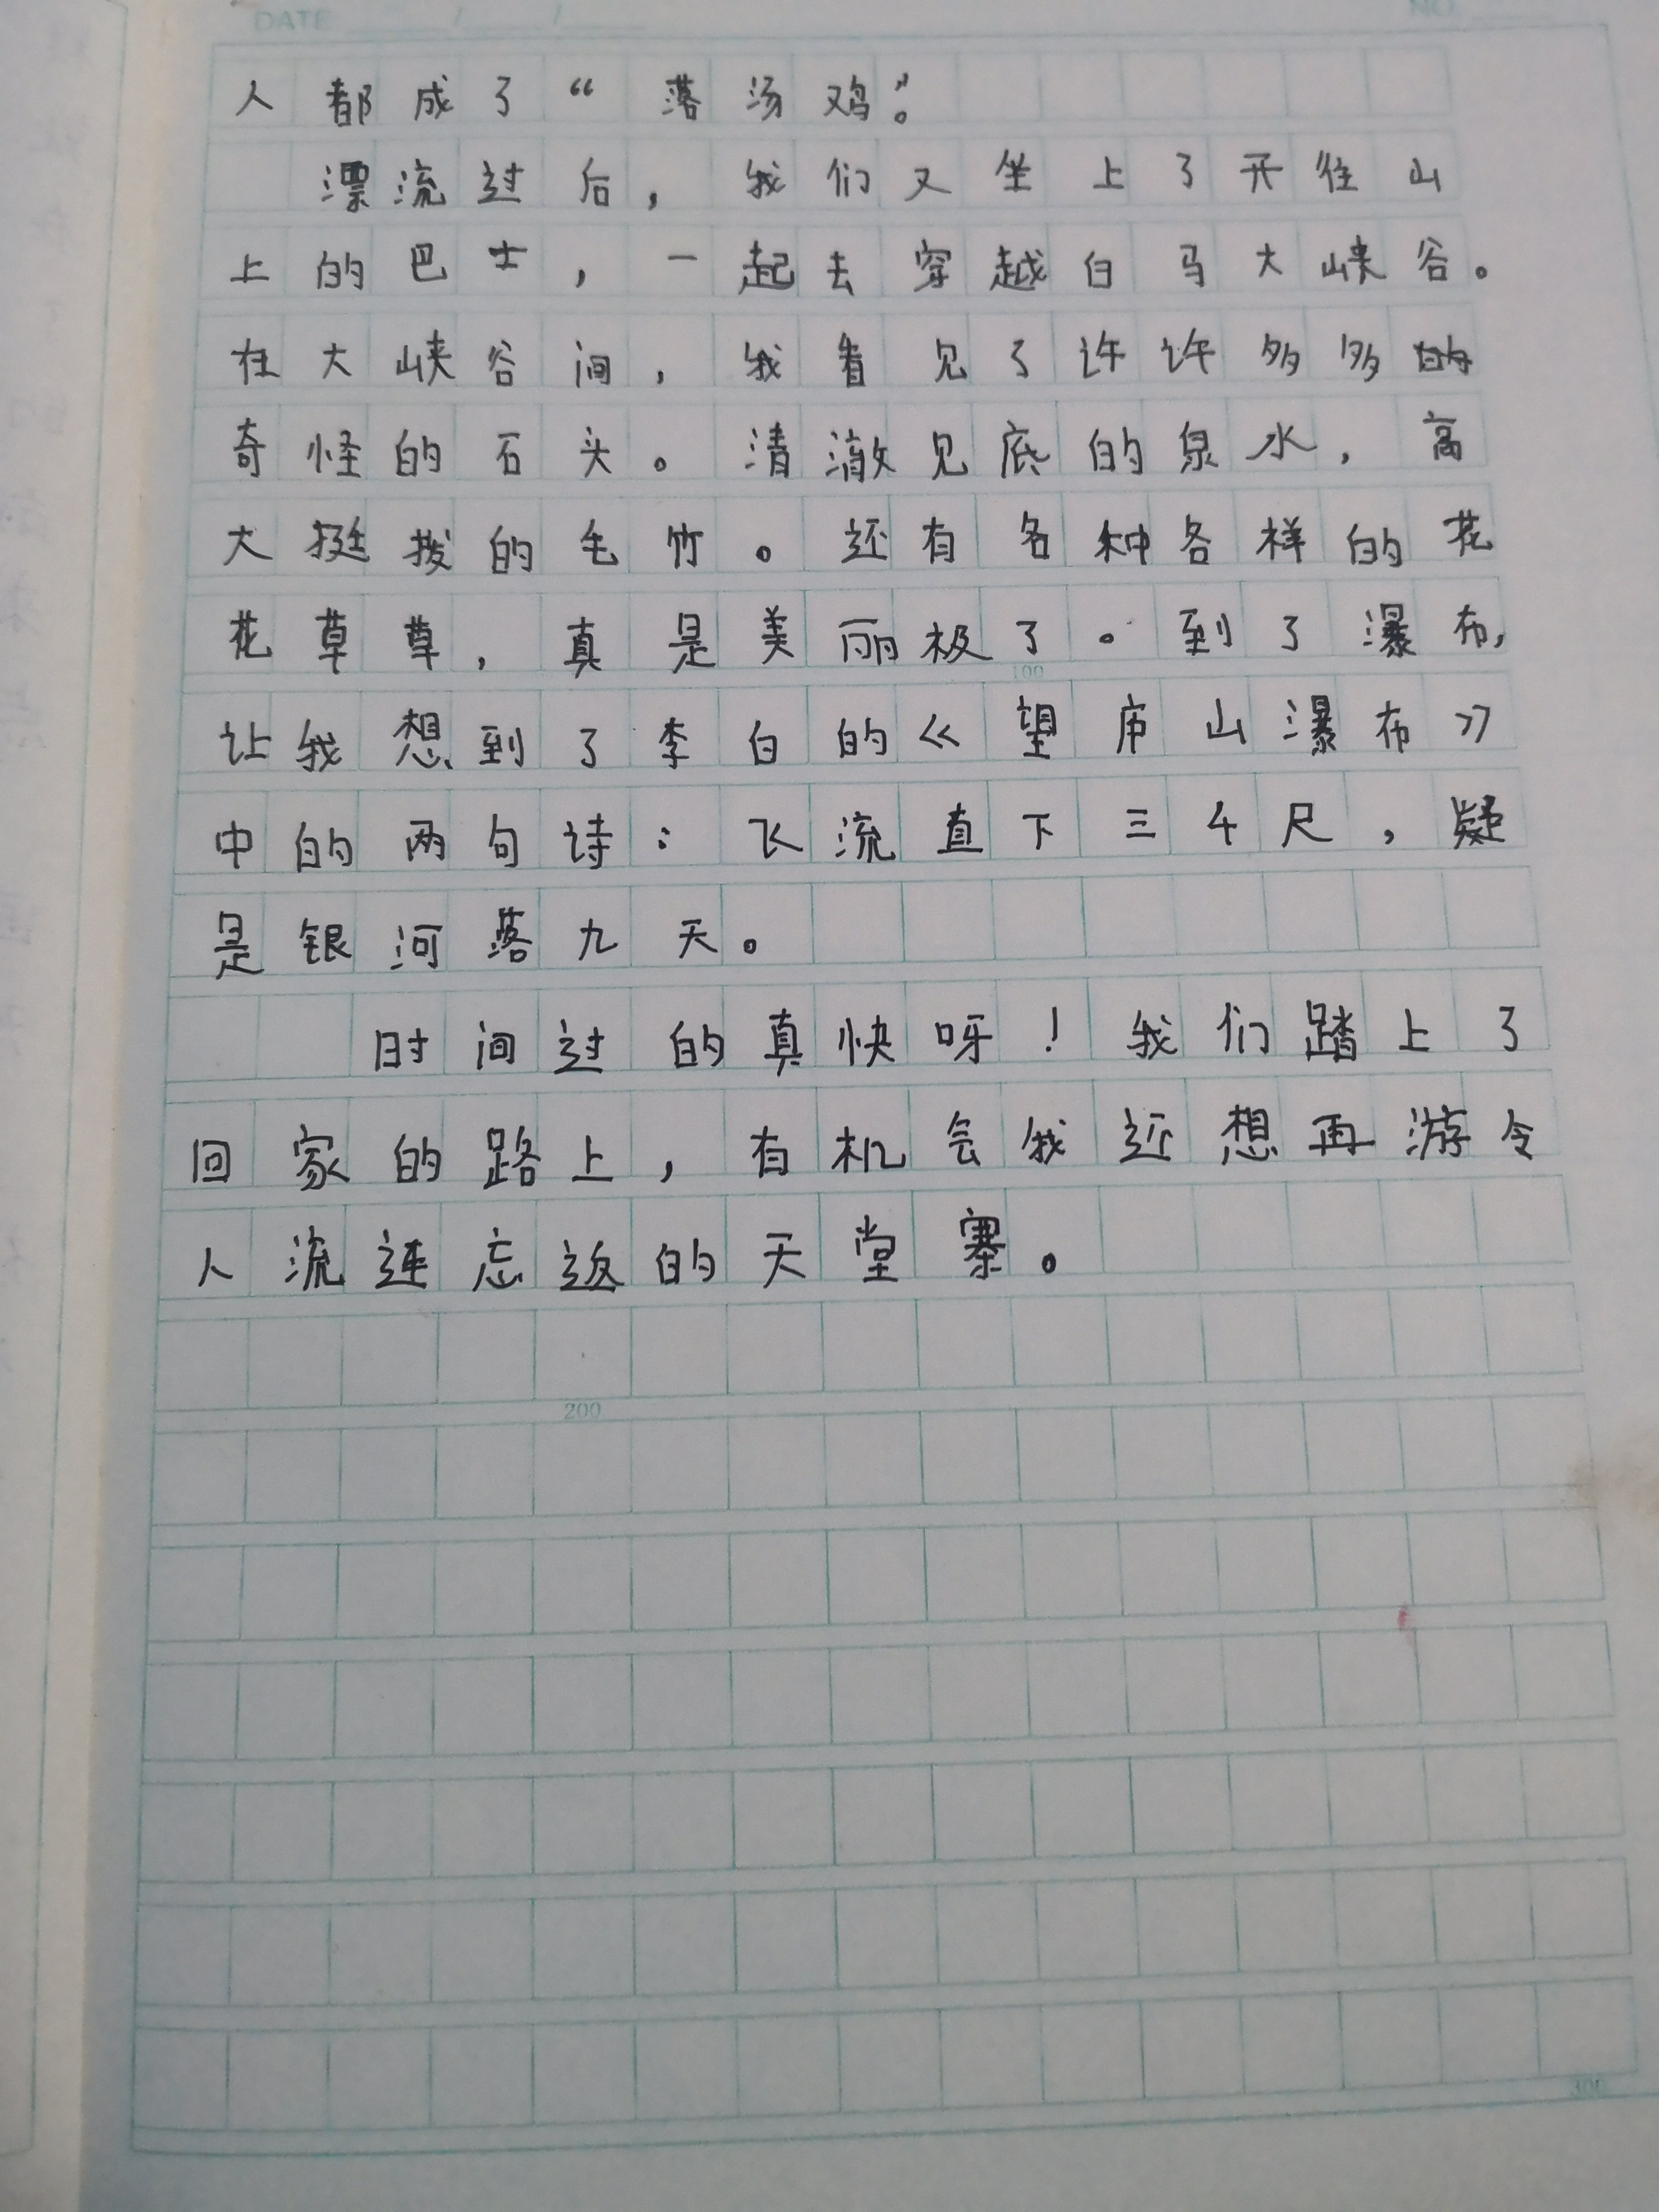 DATE / /
NO.
人都成了“落汤鸡”。
漂流过后，我们又坐上了开往山
上的巴士，一起去穿越白马大峡谷。
在大峡谷间，我看见了许许多多的
奇怪的石头。清澈见底的泉水，高
大挺拨的毛竹。还有各种各样的花
花草草，真是美丽极了。到了瀑布，
100
让我想到了李白的《望庐山瀑布》
中的两句诗：飞流直下三千尺，疑
是银河落九天。
时间过的真快呀！我们踏上了
回家的路上，有机会我还想再游令
人流连忘返的天堂寨。
200
300